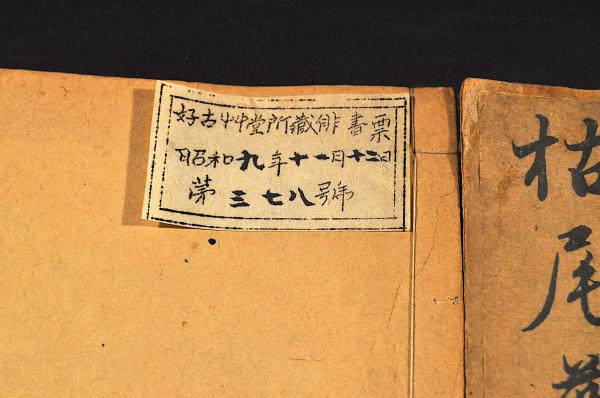 好古艸堂所蔵俳書票
昭和九年十一月十二日
第三七八號
枯尾